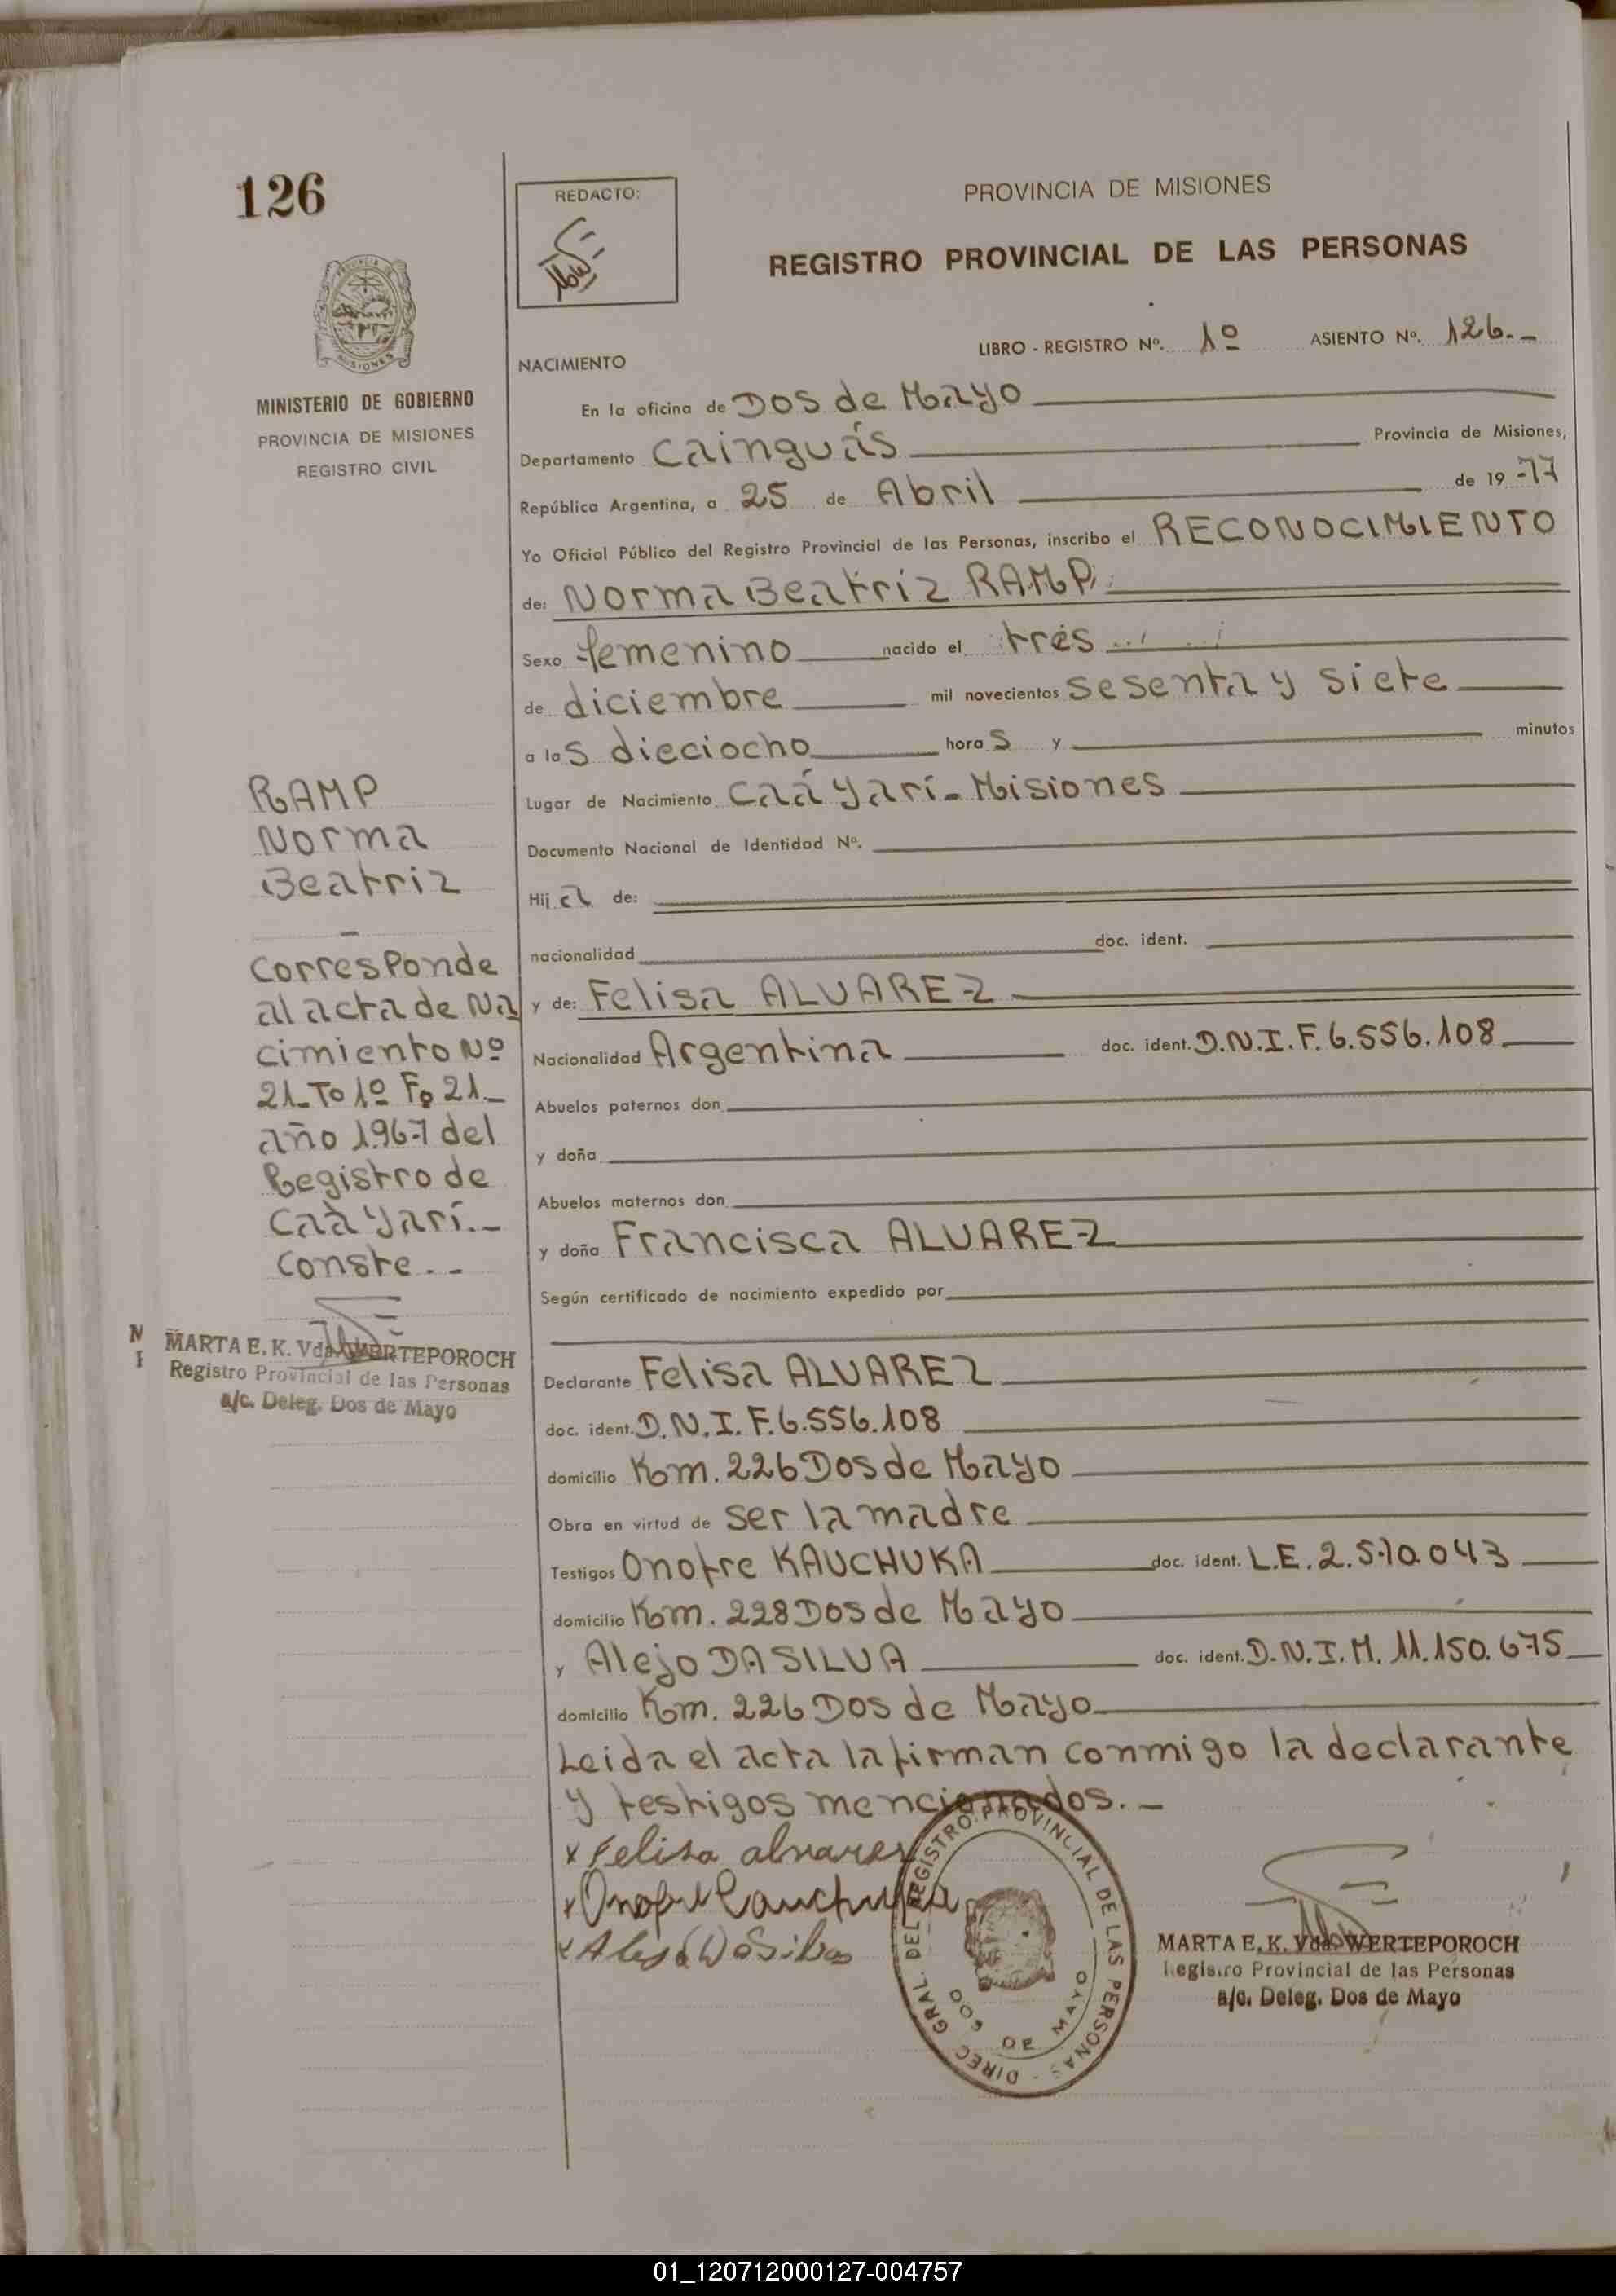 126
REDACTO:
PROVINCIA DE MISIONES
REGISTRO PROVINCIAL DE LAS PERSONAS
LIBRO - REGISTRO Nº. 1º ASIENTO Nº. 126.-
NACIMIENTO
MINISTERIO DE GOBIERNO
PROVINCIA DE MISIONES
REGISTRO CIVIL
En la oficina de Dos de Mayo
Departamento Cainguás Provincia de Misiones,
República Argentina, a 25 de Abril de 19 77
Yo Oficial Público del Registro Provincial de las Personas, inscribo el RECONOCIMIENTO
de: Norma Beatriz RAMP
Sexo femenino nacido el tres
de diciembre mil novecientos sesenta y siete
a las dieciocho horas y minutos
Lugar de Nacimiento Caá Yarí - Misiones
Documento Nacional de Identidad Nº.
Hija de:
nacionalidad doc. ident.
y de: Felisa ALVAREZ
Nacionalidad Argentina doc. ident. D.N.I.F. 6.556.108
Abuelos paternos don
y doña
Abuelos maternos don
y doña Francisca ALVAREZ
Según certificado de nacimiento expedido por
Declarante Felisa ALVAREZ
doc. ident. D.N.I.F. 6.556.108
domicilio Km. 226 Dos de Mayo
Obra en virtud de ser la madre
Testigos Onofre KAUCHUKA doc. ident. L.E. 2.570.043
domicilio Km. 228 Dos de Mayo
y Alejo DA SILVA doc. ident. D.N.I.M. 11.150.675
domicilio Km. 226 Dos de Mayo
Leida el acta la firman conmigo la declarante
y testigos mencionados.-
x Felisa alvares
x Onofre Cauchuka
x Alejo Da Silva
RAMP
Norma
Beatriz
Corresponde
al acta de Na
cimiento Nº
21 - Tº 1º Fº 21.-
año 1967 del
Registro de
Caà Yarí.-
Conste.-
MARTA E. K. Vda. WERTEPOROCH
Registro Provincial de las Personas
a/c. Deleg. Dos de Mayo
DIREC GRAL. DEL REGISTRO PROVINCIAL DE LAS PERSONAS -
DOS DE MAYO
MARTA E. K. Vda. WERTEPOROCH
Registro Provincial de las Personas
a/c. Deleg. Dos de Mayo
01_120712000127-004757